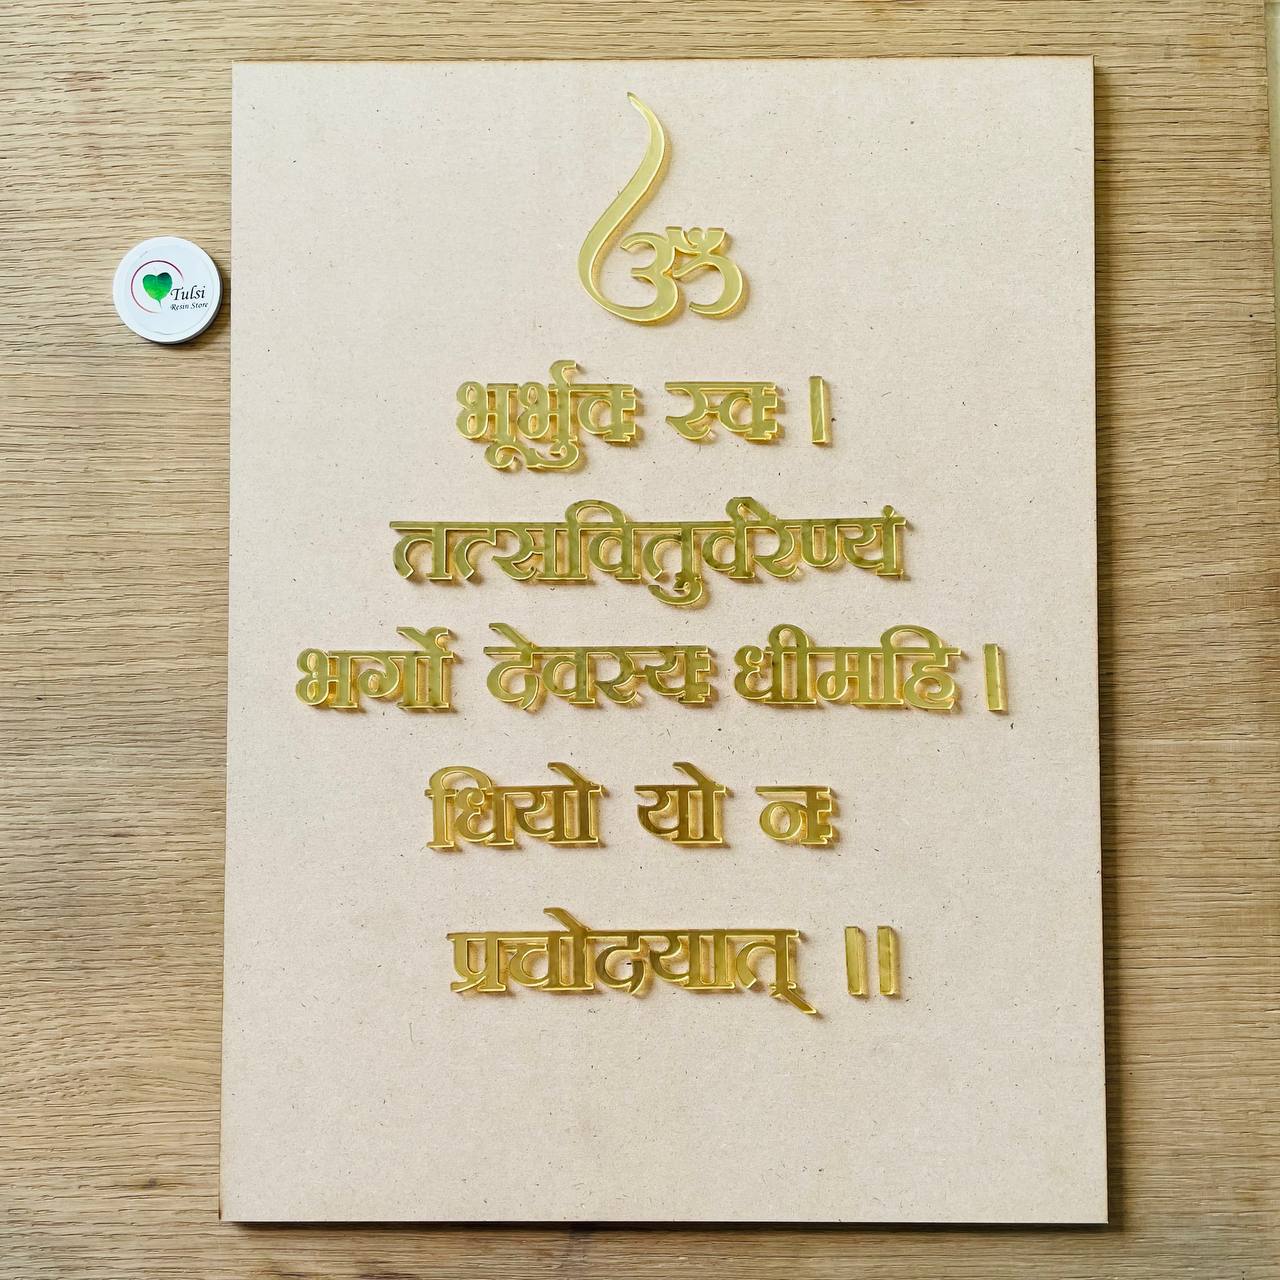 ॐ
भूर्भुवः स्वः ।
तत्सवितुर्वरेण्यं
भर्गो देवस्यः धीमहि ।
धियो यो नः
प्रचोदयात् ॥
Tulsi
Resin Store